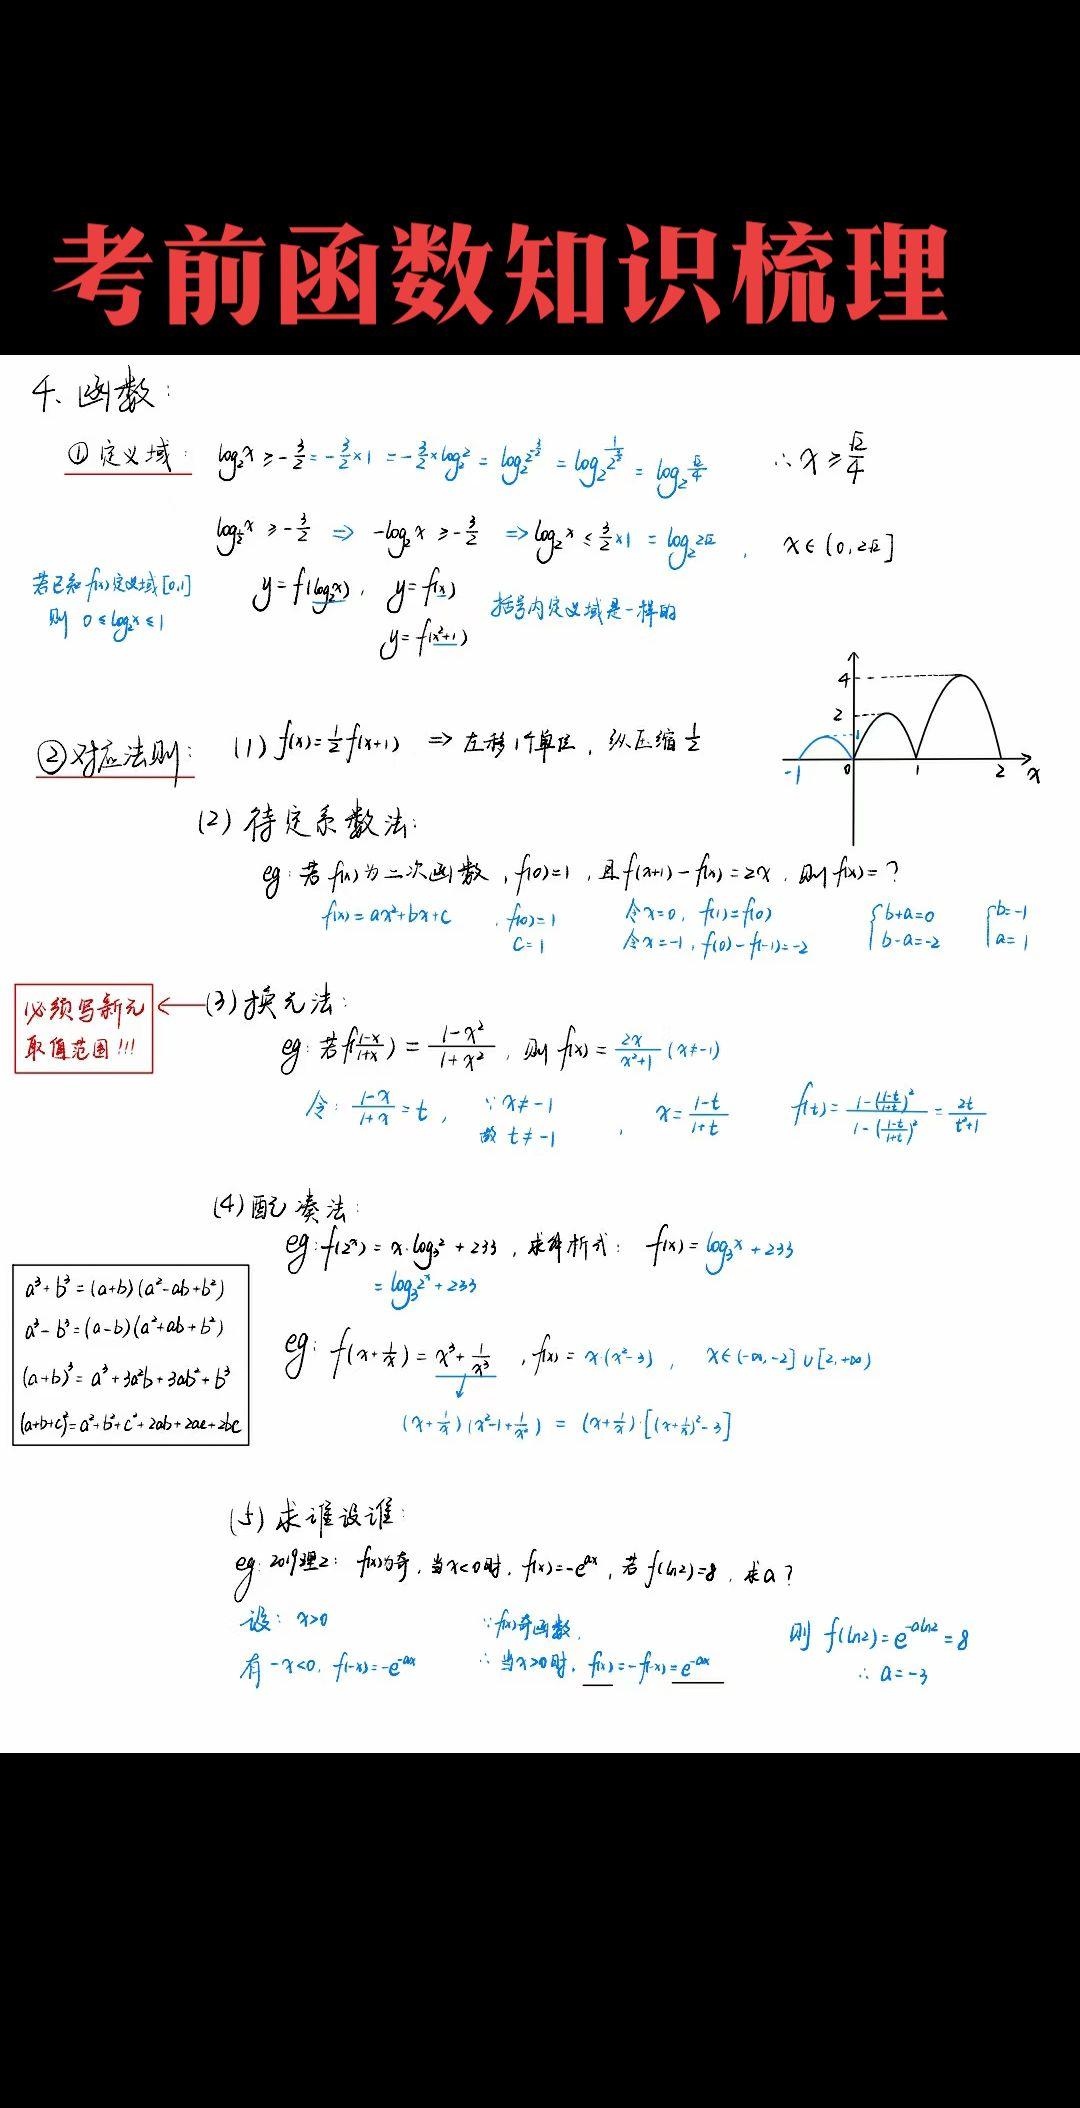 考前函数知识梳理
4. 函数:
① 定义域: log₂x ≥ -3/2 = -3/2×1 = -3/2×log₂2 = log₂2^(-3/2) = log₂ 1/2^(3/2) = log₂ √2/4 ∴ x ≥ √2/4
log_(1/2)x ≥ -3/2 ⇒ -log₂x ≥ -3/2 ⇒ log₂x ≤ 3/2×1 = log₂2√2, x∈(0,2√2]
若已知f(x)定义域[0,1]
则 0≤log₂x≤1
y=f(log₂x), y=f(x)
y=f(x²+1)
括号内定义域是一样的
② 对应法则: (1) f(x)=1/2f(x+1) ⇒ 左移1个单位, 纵压缩1/2
4
2
1
-1 0 1 2 x
(2) 待定系数法:
eg: 若f(x)为二次函数, f(0)=1, 且f(x+1)-f(x)=2x, 则f(x)=?
f(x)=ax²+bx+c , f(0)=1 令x=0, f(1)=f(0) {b+a=0 {b=-1
c=1 令x=-1, f(0)-f(-1)=-2 b-a=-2 a=1
必须写新元
取值范围!!!
← (3) 换元法:
eg: 若f((1-x)/(1+x)) = (1-x²)/(1+x²), 则f(x) = 2x/(x²+1) (x≠-1)
令: (1-x)/(1+x)=t, ∵x≠-1 x=(1-t)/(1+t) f(t)=(1-((1-t)/(1+t))²)/(1-((1-t)/(1+t))²)=2t/(t²+1)
故 t≠-1 ,
(4) 配凑法:
eg: f(2ˣ) = x·log₃2 + 233, 求解析式: f(x)=log₃x+233
= log₃2ˣ+233
a³+b³=(a+b)(a²-ab+b²)
a³-b³=(a-b)(a²+ab+b²)
(a+b)³=a³+3a²b+3ab²+b³
(a+b+c)²=a²+b²+c²+2ab+2ac+2bc
eg: f(x+1/x)=x³+1/x³, f(x)=x(x²-3), x∈(-∞,-2]∪[2,+∞)
(x+1/x)(x²-1+1/x²) = (x+1/x)·[(x+1/x)²-3]
(5) 求谁设谁:
eg: 2019理2: f(x)为奇, 当x<0时, f(x)=-e^(ax), 若f(ln2)=8, 求a?
设: x>0 ∵f(x)奇函数, 则 f(ln2)=e^(-aln2)=8
有 -x<0, f(-x)=-e^(-ax) ∴当x>0时, f(x)=-f(-x)=e^(-ax) ∴a=-3